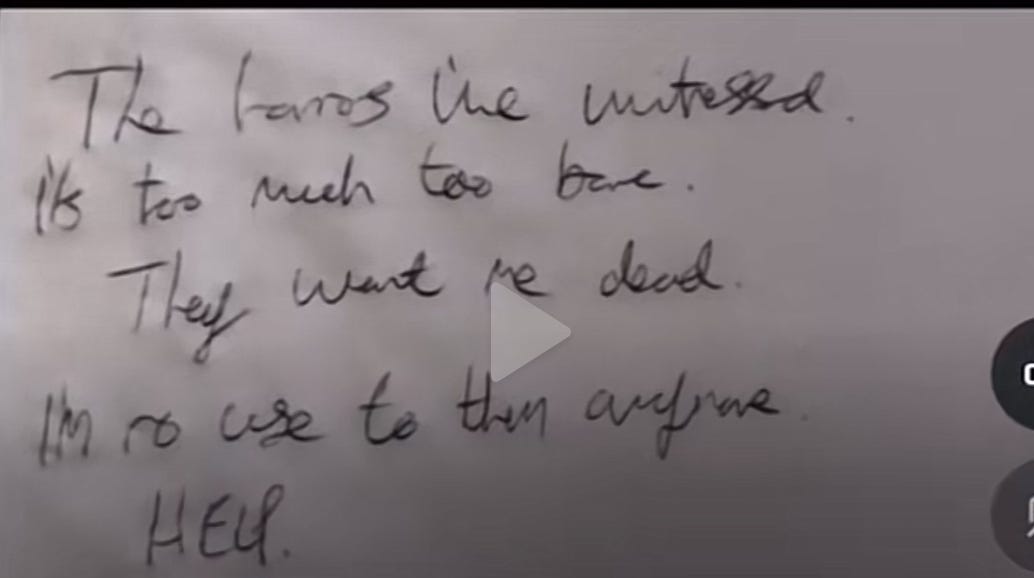 The horrors i've witnessed.
it's too much too bare.
They want me dead.
I'm no use to them anymore.
HELP.